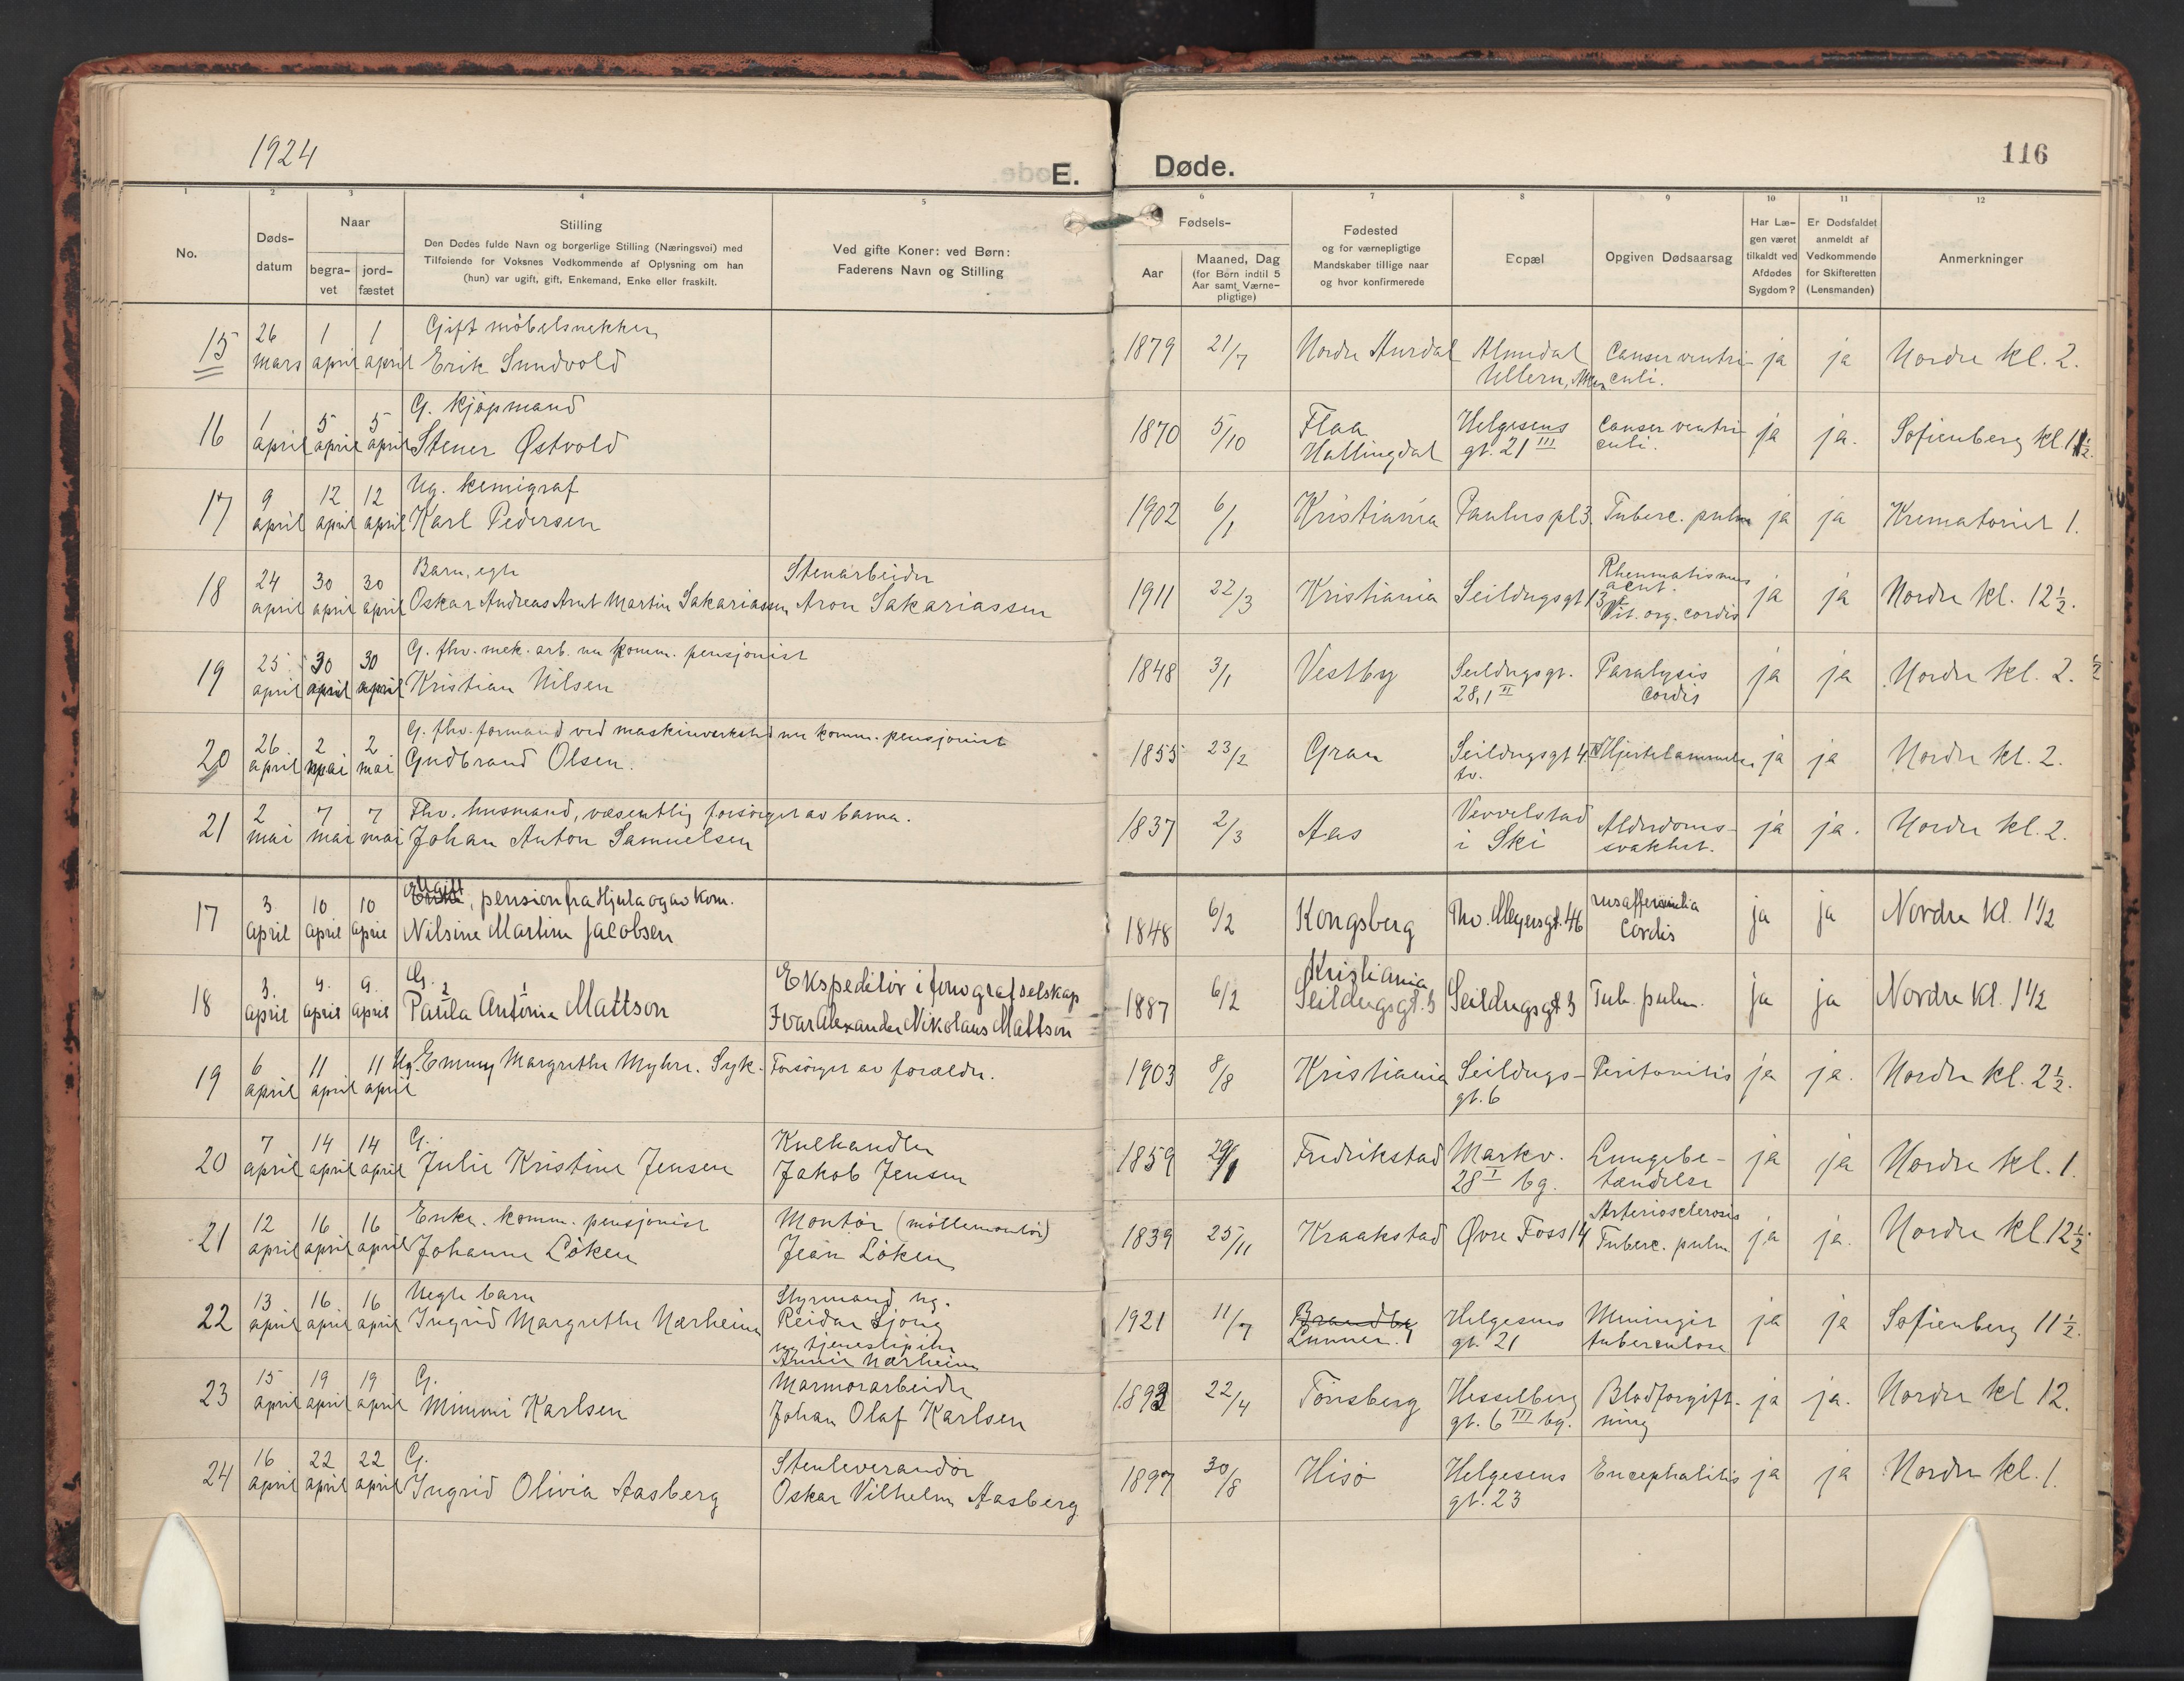 1924
E. Døde.
116
1 2 3 4 5 6 7 8 9 10 11 12
No.
Døds-
datum
Naar
begra-
vet
jord-
fæstet
Stilling
Den Dødes fulde Navn og borgerlige Stilling (Næringsvei) med
Tilføiende for Voksnes Vedkommende af Oplysning om han
(hun) var ugift, gift, Enkemand, Enke eller fraskilt.
Ved gifte Koner: ved Børn:
Faderens Navn og Stilling
Fødsels-
Aar
Maaned, Dag
(for Børn indtil 5
Aar samt Værne-
pligtige)
Fødested
og for værnepligtige
Mandskaber tillige naar
og hvor konfirmerede
Bopæl
Opgiven Dødsaarsag
Har Læ-
gen været
tilkaldt ved
Afdødes
Sygdom?
Er Dødsfaldet
anmeldt af
Vedkommende
for Skifteretten
(Lensmanden)
Anmerkninger
15 26 mars 1 april 1 april Gift möbelsnekker
Erik Sundvold 1879 21/7 Nordre Aurdal Almedal Canser ventri- ja ja Nordre kl. 2.
Ullern, culi.
16 1 april 5 april 5 april G. kjöpmand
Stener Østvold 1870 5/10 Flaa Helgesens Canser ventri- ja ja. Sofienberg kl. 11½.
Hallingdal gt. 21 III culi.
17 9 april 12 april 12 april Ug. kemigraf
Karl Pedersen 1902 6/1 Kristiania Paulus pl 3. Tuberc. pulm ja ja Krematoriet 1.
18 24 april 30 april 30 april Barn, egte Stenarbeider Rheumatismus
Oskar Andreas Arnt Martin Sakariassen Aron Sakariassen 1911 22/3 Kristiania Seildugsgt 13 acut. ja ja Nordre kl. 12½.
Vit. org. cordis
19 25 april 30 april 30 april G. fhv. mek. arb. nu komm. pensjonist
Kristian Nilsen 1848 3/1 Vestby Seildugsgt. Paralysis ja ja Nordre kl. 2.½
28, 1 II cordis
20 26 april 2 mai 2 mai G. fhv. formand ved maskinverksted nu komm. pensjonist
Gudbrand Olsen. 1855 23/2 Gran Seildugsgt 4 Hjertelammelse ja ja Nordre kl. 2.
tv.
21 2 mai 7 mai 7 mai Fhv. husmand, væsentlig forsörget av barna.
Johan Anton Samuelsen 1837 2/3 Aas Vevelstad Alderdoms- ja ja. Nordre kl. 2.
i Ski svakhet.
17 3 april 10 april 10 april Ugift, pension fra Hjula og av kom.
Nilsine Martine Jacobsen 1848 6/2 Kongsberg Thv. Meyersgt. 46 Cordis ja ja Nordre kl. 1½
18 3. april 9. april 9. april G. Ekspeditör i fonografselskap Kristiania
2 1
Paula Antonie Mattson Ivar Alexander Nikolaus Mattson 1887 6/2 Seildugsgt. 3 Seildugsgt 3 Tub. pulm. ja ja Nordre kl. 1½
19 6 april 11 april 11 april Ug. Emmy Margrethe Myhre. Syk. Forsörget av forældre. 1903 8/8 Kristiania Seildugs- Peritonitis ja ja. Nordre kl. 2½.
gt. 6
20 7 april 14 april 14 april G. Kulhandler
Julie Kristine Jensen Jakob Jensen 1859 29/1 Fredrikstad Markv. Lungebe- ja ja Nordre kl. 1.
28 I bg. tændelse
21 12 april 16 april 16 april Enke. komm. pensjonist Montör (möllemontör) Arteriosclerosis
Johanne Löken Jean Löken 1839 25/11 Kraakstad Øvre Foss 14 Tuberc. pulm ja ja. Nordre kl. 12½.
22 13 april 16 april 16 april Uegte barn Styrmand ug.
Ingrid Margrethe Nærheim Reidar Ljong 1921 11/7 Brandbu Helgesens Meningit ja ja Sofienberg 11½.
ug tjenestepike Lunner. gt. 21 tuberculosa
Annie Nærheim
23 15 april 19 april 19 april G. Marmorarbeider
Mimmi Karlsen Johan Olaf Karlsen 1893 22/4 Tönsberg Hesselberg Blodforgift- ja ja. Nordre kl 12.
gt. 6 III bg. ning
24 16 april 22 april 22 april G. Stenleverandör
Ingrid Olivia Aasberg Oskar Vilhelm Aasberg 1897 30/8 Hisö Helgesens Encephalitis ja ja Nordre kl. 1.
gt. 23